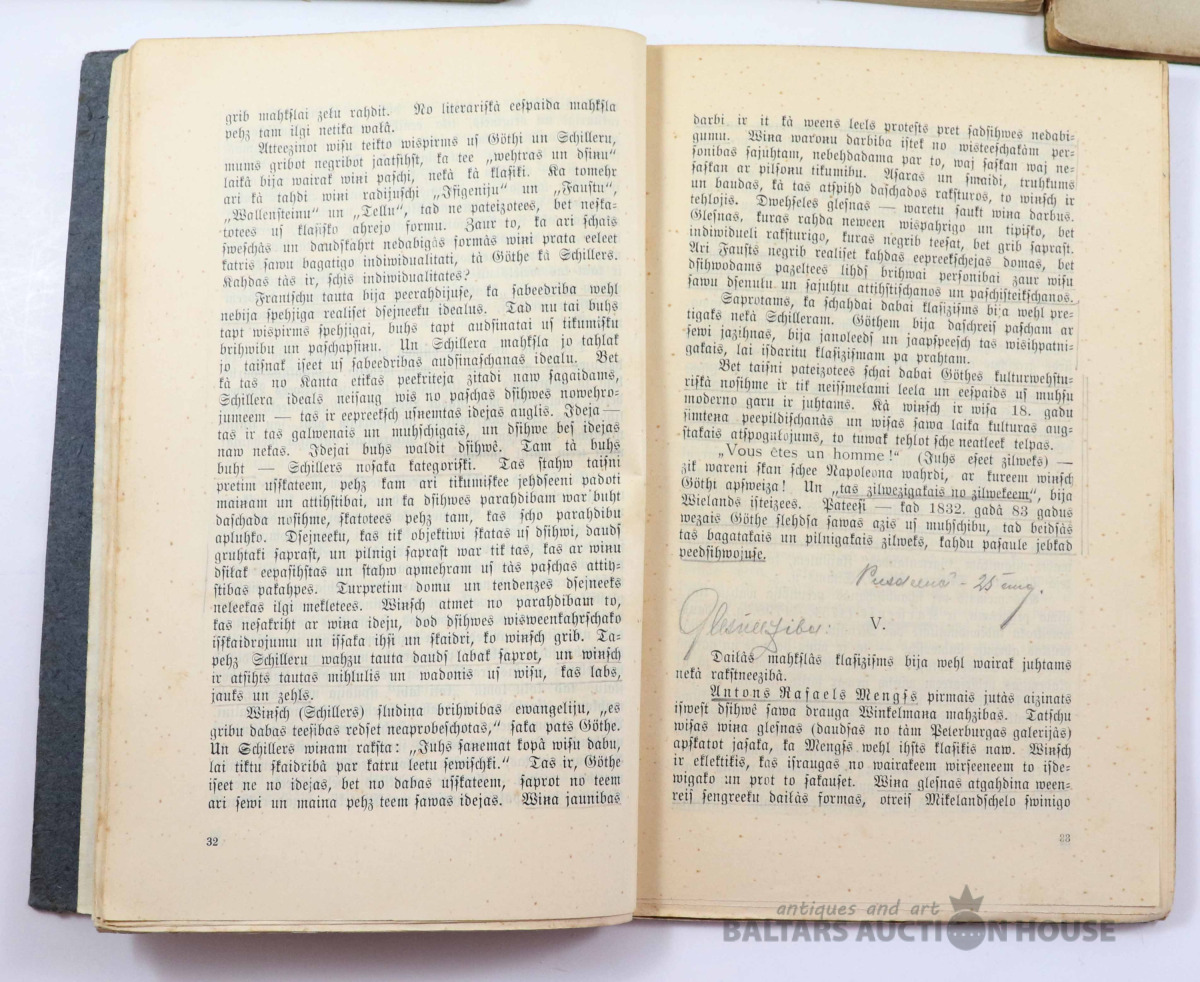 grib mahkſlai zelu rahdit. No literariſkà eeſpaida mahkſla
pehz tam ilgi netika walâ.
Atteezinot wiſu teikto wispirms uſ Göthi un Schilleru,
mums gribot negribot jaatſihſt, ka tee „wehtras un dſinu“
laikâ bija wairak wini paſchi, nekâ kâ klaſiki. Ka tomehr
ari kâ tahdi wini radijuſchi „Iſigeniju“ un „Fauſtu“,
„Wallenſteinu“ un „Tellu“, tad ne pateizotees, bet neſka-
totees uſ klaſiſko ahrejo formu. Zaur to, ka ari ſchais
ſweſchâs un daudſkahrt nedabigâs formâs wini prata eeleet
katris ſawu bagatigo indiwidualitati, tâ Göthe kâ Schillers.
Kahdas tâs ir, ſchis indiwidualitates?
Frantſchu tauta bija peerahdijuſe, ka ſabeedriba wehl
nebija ſpehjiga realiſet dſejneeku idealus. Tad nu tai buhs
tapt wispirms ſpehjigai, buhs tapt audſinatai uſ tikumiſku
brihwibu un paſchapſinu. Un Schillera mahkſla jo tahlak
jo taiſnak iſeet uſ ſabeedribas audſinaſchanas idealu. Bet
kâ tas no Kanta etikas peekriteja zitadi naw ſagaidams,
Schillera ideals neiſaug wis no paſchas dſihwes nowehro-
jumeem — tas ir eepreekſch uſnemtas idejas auglis. Ideja —
tas ir tas galwenais un muhſchigais, un dſihwe beſ idejas
naw nekas. Idejai buhs waldit dſihwê. Tam tâ buhs
buht — Schillers noſaka kategoriſki. Tas ſtahw taiſni
pretim uſſkateem, pehz kam ari tikumiſkee jehdſeeni padoti
mainam un attihſtibai, un ka dſihwes parahdibam war buht
daſchada noſihme, ſkatotees pehz tam, kas ſcho parahdibu
apluhko. Dſejneeku, kas tik objektiwi ſkatas uſ dſihwi, daudſ
gruhtaki ſapraſt, un pilnigi ſapraſt war tik tas, kas ar winu
dſilak eepaſihſtas un ſtahw apmehram uſ tâs paſchas attih-
ſtibas pakahpes. Turpretim domu un tendenzes dſejneeks
neleekas ilgi mekletees. Winſch atmet no parahdibam to,
kas neſakriht ar wina ideju, dod dſihwes wisweenkahrſchako
iſſkaidrojumu un iſſaka ihſi un ſkaidri, ko winſch grib. Ta-
pehz Schilleru wahzu tauta daudſ labak ſaprot, un winſch
ir atſihts tautas mihlulis un wadonis uſ wiſu, kas labs,
jauks un zehls.
Winſch (Schillers) ſludina brihwibas ewangeliju, „es
gribu dabas teeſibas redſet neaprobeſchotas,“ ſaka pats Göthe.
Un Schillers winam rakſta: „Juhs ſanemat kopâ wiſu dabu,
lai tiktu ſkaidribâ par katru leetu ſewiſchki.“ Tas ir, Göthe
iſeet ne no idejas, bet no dabas uſſkateem, ſaprot no teem
ari ſewi un maina pehz teem ſawas idejas. Wina jaunibas
32
darbi ir it kâ weens leels proteſts pret ſadſihwes nedabi-
gumu. Wina waronu darbiba iſtek no wisteeſchakàm per-
ſonibas ſajuhtam, nebehdadama par to, waj ſaſkan waj ne-
ſaſkan ar pilſonu tikumibu. Aſaras un ſmaidi, truhkums
un baudas, kâ tas atſpihd daſchados rakſturos, to winſch ir
tehlojis. Dwehſeles gleſnas — waretu ſaukt wina darbus.
Gleſnas, kuras rahda neween wispahrigo un tipiſko, bet
indiwidueli rakſturigo, kuras negrib teeſat, bet grib ſapraſt.
Ari Fauſts negrib realiſet kahdas eepreekſchejas domas, bet
dſihwodams pazeltees lihdſ brihwai perſonibai zaur wiſu
ſawu dſenulu un ſajuhtu attihſtiſchanos un paſchiſteikſchanos.
Saprotams, ka ſchahdai dabai klaſiziſms bija wehl pre-
tigaks nekâ Schilleram. Göthem bija daſchreiſ paſcham ar
ſewi jazihnas, bija janoleedſ un jaapſpeeſch tas wisihpatni-
gakais, lai iſdaritu klaſiziſmam pa prahtam.
Bet taiſni pateizotees ſchai dabai Göthes kulturwehſtu-
riſkâ noſihme ir tik neiſſmelami leela un eeſpaids uſ muhſu
moderno garu ir juhtams. Kâ winſch ir wiſa 18. gadu
ſimtena peepildiſchanâs un wiſas ſawa laika kulturas aug-
ſtakais atſpogulojums, to tuwak tehlot ſche neatleek telpas.
„Vous êtes un homme!“ (Juhs eſeet zilweks) —
zik wareni ſkan ſchee Napoleona wahrdi, ar kureem winſch
Göthi apſweiza! Un „tas zilwezigakais no zilwekeem“, bija
Wielands iſteizees. Pateeſi — kad 1832. gadâ 83 gadus
wezais Göthe ſlehdſa ſawas azis uſ muhſchibu, tad beidſâs
tas bagatakais un pilnigakais zilweks, kahdu paſaule jebkad
peedſihwojuſe.
25 aug.
V.
Dailâs mahkſlâs klaſiziſms bija wehl wairak juhtams
nekâ rakſtneezibâ.
Antons Rafaels Mengſs pirmais jutâs aizinats
iſweſt dſihwê ſawa drauga Winkelmana mahzibas. Tatſchu
wiſas wina gleſnas (daudſas no tâm Peterburgas galerijâs)
apſkatot jaſaka, ka Mengſs wehl ihſts klaſikis naw. Winſch
ir eklektikis, kas iſraugas no wairakeem wirſeeneem to iſde-
wigako un prot to ſakauſet. Wina gleſnas atgahdina ween-
reiſ ſengreeku dailâs formas, otreiſ Mikelandſchelo ſwinigo
33
antiques and art
BALTARS AUCTION HOUSE